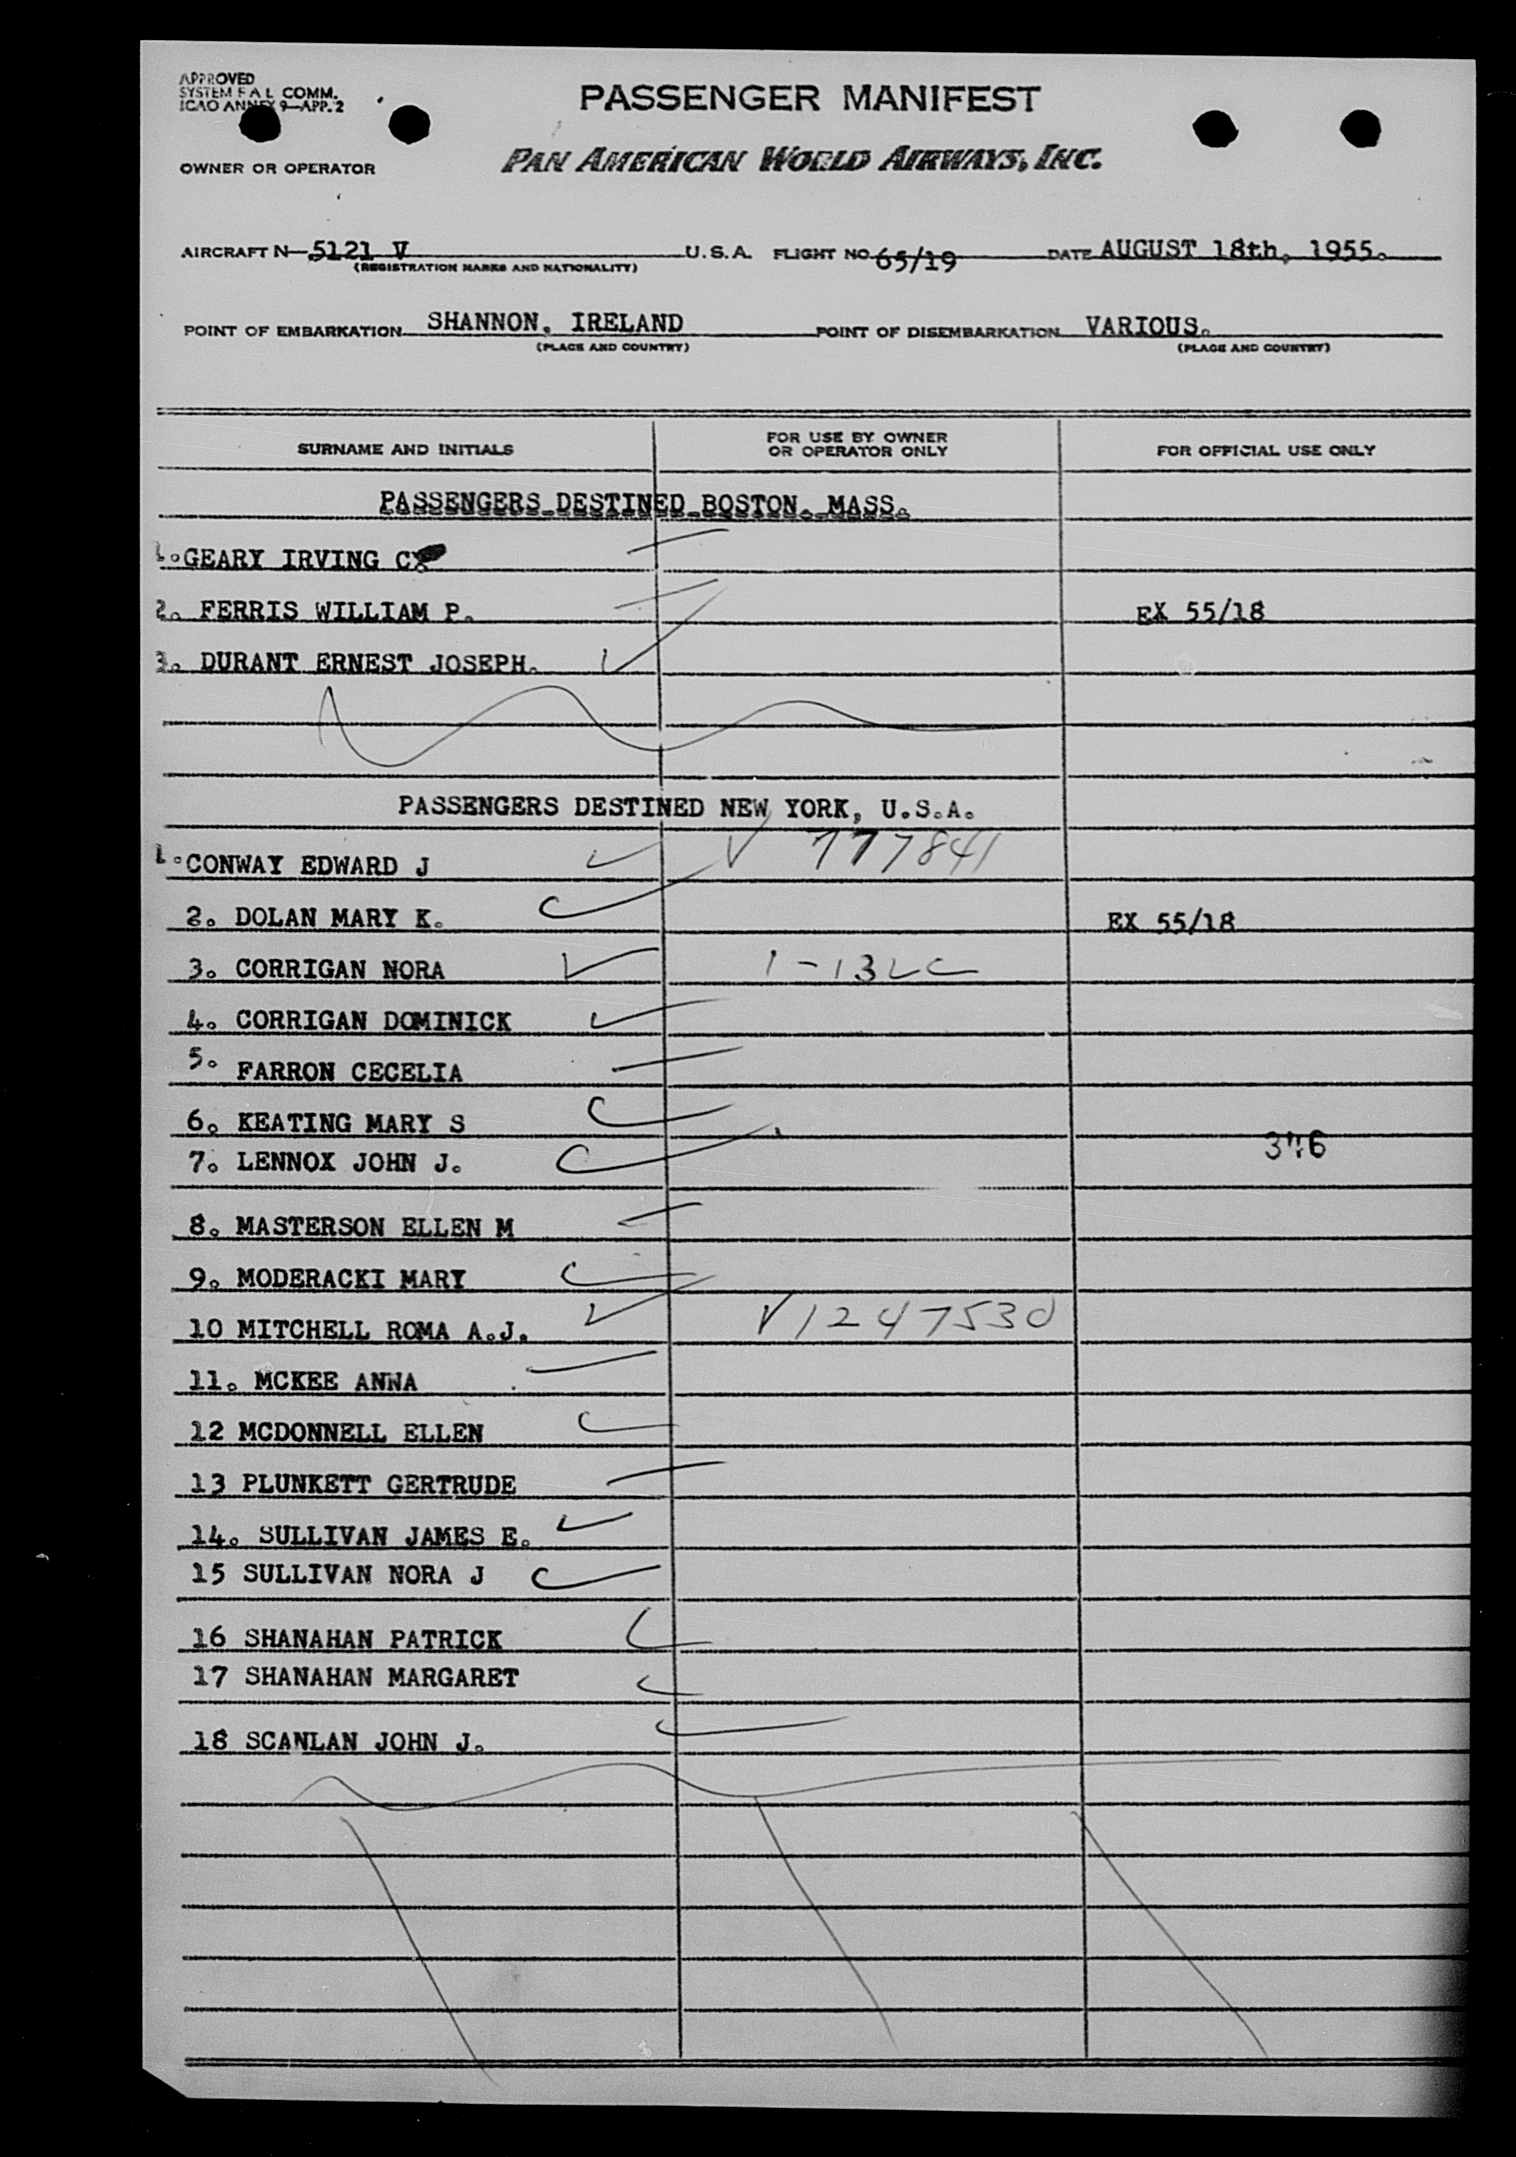 APPROVED
SYSTEM F A L COMM.
ICAO ANNEX 9—APP. 2
PASSENGER MANIFEST
OWNER OR OPERATOR
PAN AMERICAN WORLD AIRWAYS, INC.
AIRCRAFT N—5121 V U.S.A. FLIGHT NO 65/19 DATE AUGUST 18th, 1955.
(REGISTRATION MARKS AND NATIONALITY)
POINT OF EMBARKATION SHANNON. IRELAND POINT OF DISEMBARKATION VARIOUS.
(PLACE AND COUNTRY) (PLACE AND COUNTRY)
SURNAME AND INITIALS FOR USE BY OWNER OR OPERATOR ONLY FOR OFFICIAL USE ONLY
PASSENGERS DESTINED BOSTON. MASS.
1. GEARY IRVING C
2. FERRIS WILLIAM P. EX 55/18
3. DURANT ERNEST JOSEPH.
PASSENGERS DESTINED NEW YORK, U.S.A.
1. CONWAY EDWARD J V 777841
2. DOLAN MARY K. EX 55/18
3. CORRIGAN NORA 1-13
4. CORRIGAN DOMINICK
5. FARRON CECELIA
6. KEATING MARY S
7. LENNOX JOHN J.
8. MASTERSON ELLEN M
9. MODERACKI MARY
10 MITCHELL ROMA A.J. V1247530
11. MCKEE ANNA
12 MCDONNELL ELLEN
13 PLUNKETT GERTRUDE
14. SULLIVAN JAMES E.
15 SULLIVAN NORA J
16 SHANAHAN PATRICK
17 SHANAHAN MARGARET
18 SCANLAN JOHN J.